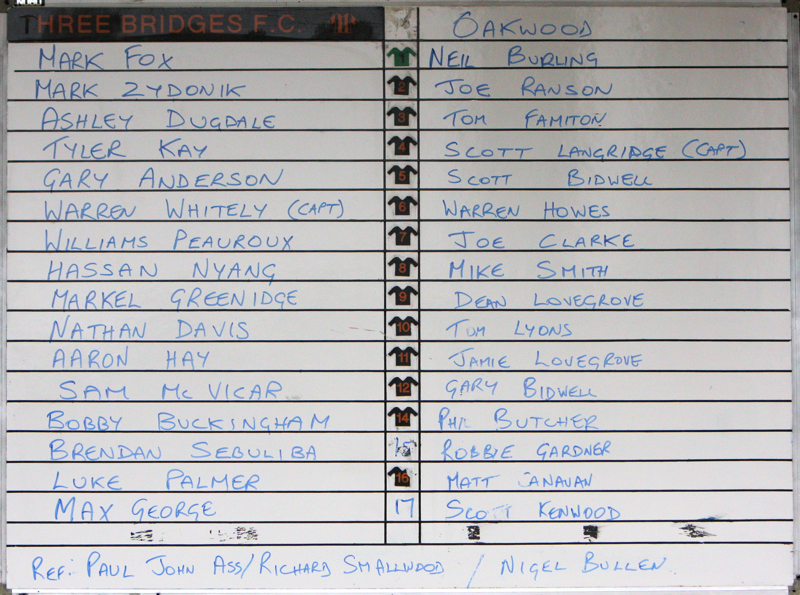 THREE BRIDGES F.C. OAKWOOD
MARK FOX 1 NEIL BURLING
MARK ZYDONIK 2 JOE RANSON
ASHLEY DUGDALE 3 TOM FAMITON
TYLER KAY 4 SCOTT LANGRIDGE (CAPT)
GARY ANDERSON 5 SCOTT BIDWELL
WARREN WHITELY (CAPT) 6 WARREN HOWES
WILLIAMS PEAUROUX 7 JOE CLARKE
HASSAN NYANG 8 MIKE SMITH
MARKEL GREENIDGE 9 DEAN LOVEGROVE
NATHAN DAVIS 10 TOM LYONS
AARON HAY 11 JAMIE LOVEGROVE
SAM Mc VICAR 12 GARY BIDWELL
BOBBY BUCKINGHAM 14 PHIL BUTCHER
BRENDAN SEBULIBA 15 ROBBIE GARDNER
LUKE PALMER 16 MATT CANAVAN
MAX GEORGE 17 SCOTT KENWOOD
REF: PAUL JOHN ASS/RICHARD SMALLWOOD / NIGEL BULLEN